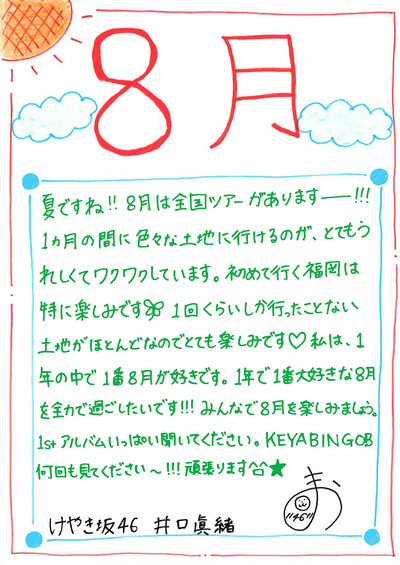 8月
夏ですね!! 8月は全国ツアーがありますーー!!!
1ヵ月の間に色々な土地に行けるのが、とてもう
れしくてワクワクしています。初めて行く福岡は
特に楽しみです 1回くらいしか行ったことない
土地がほとんどなのでとても楽しみです♡私は、1
年の中で1番8月が好きです。1年で1番大好きな8月
を全力で過ごしたいです!!! みんなで8月を楽しみましょう。
1stアルバムいっぱい聞いてください。KEYABINGO
何回も見てください〜!!! 頑張ります★
けやき坂46 井口眞緒
"46"